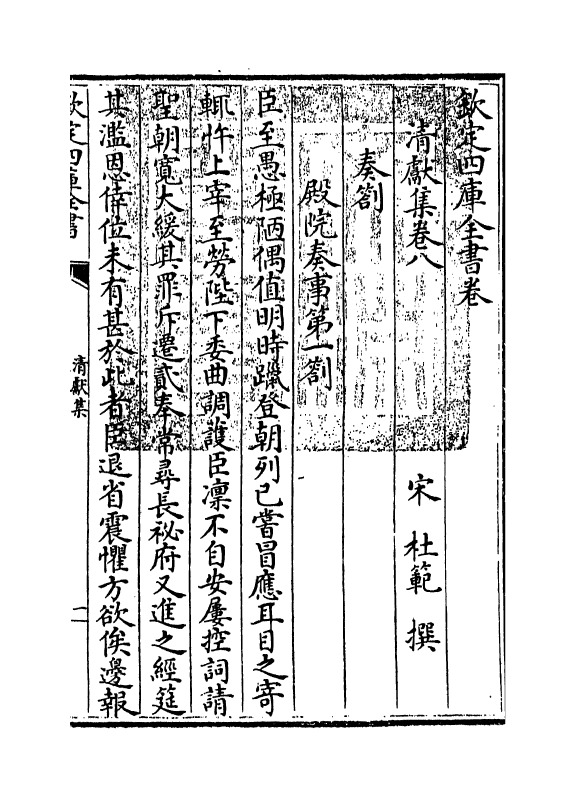 欽定四庫全書卷
清獻集卷八
宋 杜範 撰
奏劄
殿院奏事第一劄
臣至愚極陋偶值明時躐登朝列已嘗冒應耳目之寄
輒忤上宰至勞陛下委曲調護臣凛不自安屢控詞請
聖朝寛大緩其罪斥遷貳奉常尋長祕府又進之經筵
其濫恩倖位未有甚於此者臣退省震懼方欲俟邊報
欽定四庫全書
清獻集